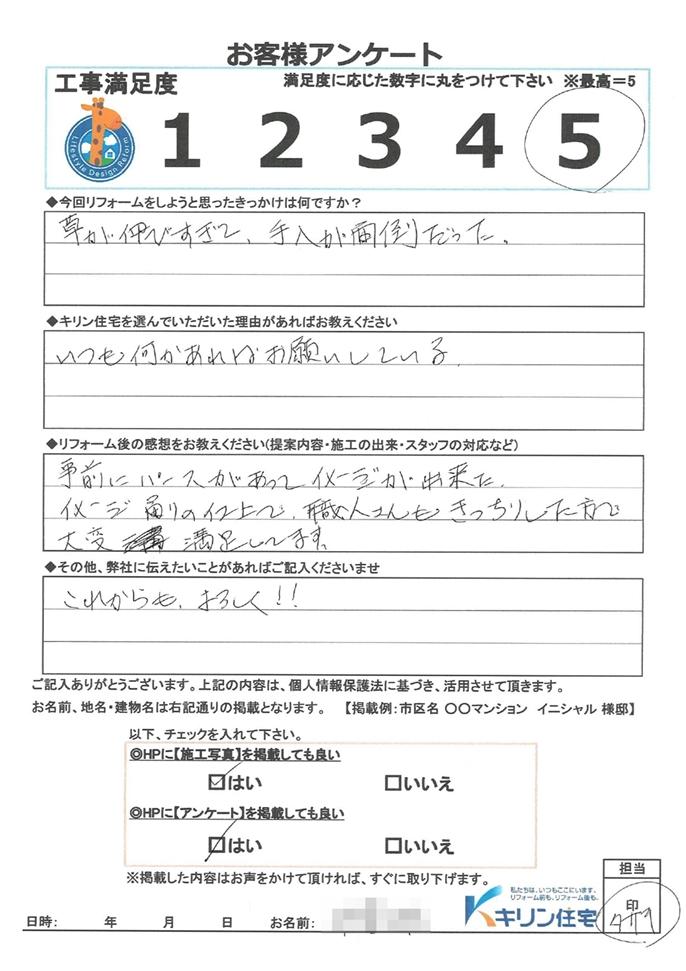 お客様アンケート
工事満足度
満足度に応じた数字に丸をつけて下さい ※最高=5
Lifestyle Design Reform
1 2 3 4 5
◆今回リフォームをしようと思ったきっかけは何ですか?
草が伸びすぎて、手入が面倒だった。
◆キリン住宅を選んでいただいた理由があればお教えください
いつも何かあればお願いしている。
◆リフォーム後の感想をお教えください(提案内容・施工の出来・スタッフの対応など)
事前にパースがあってイメージが出来た。
イメージ通りの仕上で、職人さんもきっちりした方で
大変満足してます。
◆その他、弊社に伝えたいことがあればご記入くださいませ
これからも、よろしく!!
ご記入ありがとうございます。上記の内容は、個人情報保護法に基づき、活用させて頂きます。
お名前、地名・建物名は右記通りの掲載となります。 【掲載例:市区名 〇〇マンション イニシャル 様邸】
以下、チェックを入れて下さい。
◎HPに【施工写真】を掲載しても良い
☑はい □いいえ
◎HPに【アンケート】を掲載しても良い
☑はい □いいえ
※掲載した内容はお声をかけて頂ければ、すぐに取り下げます。
私たちは、いつもここにいます。
リフォーム前も、リフォーム後も。
キリン住宅
担当
印
日時: 年 月 日 お名前: